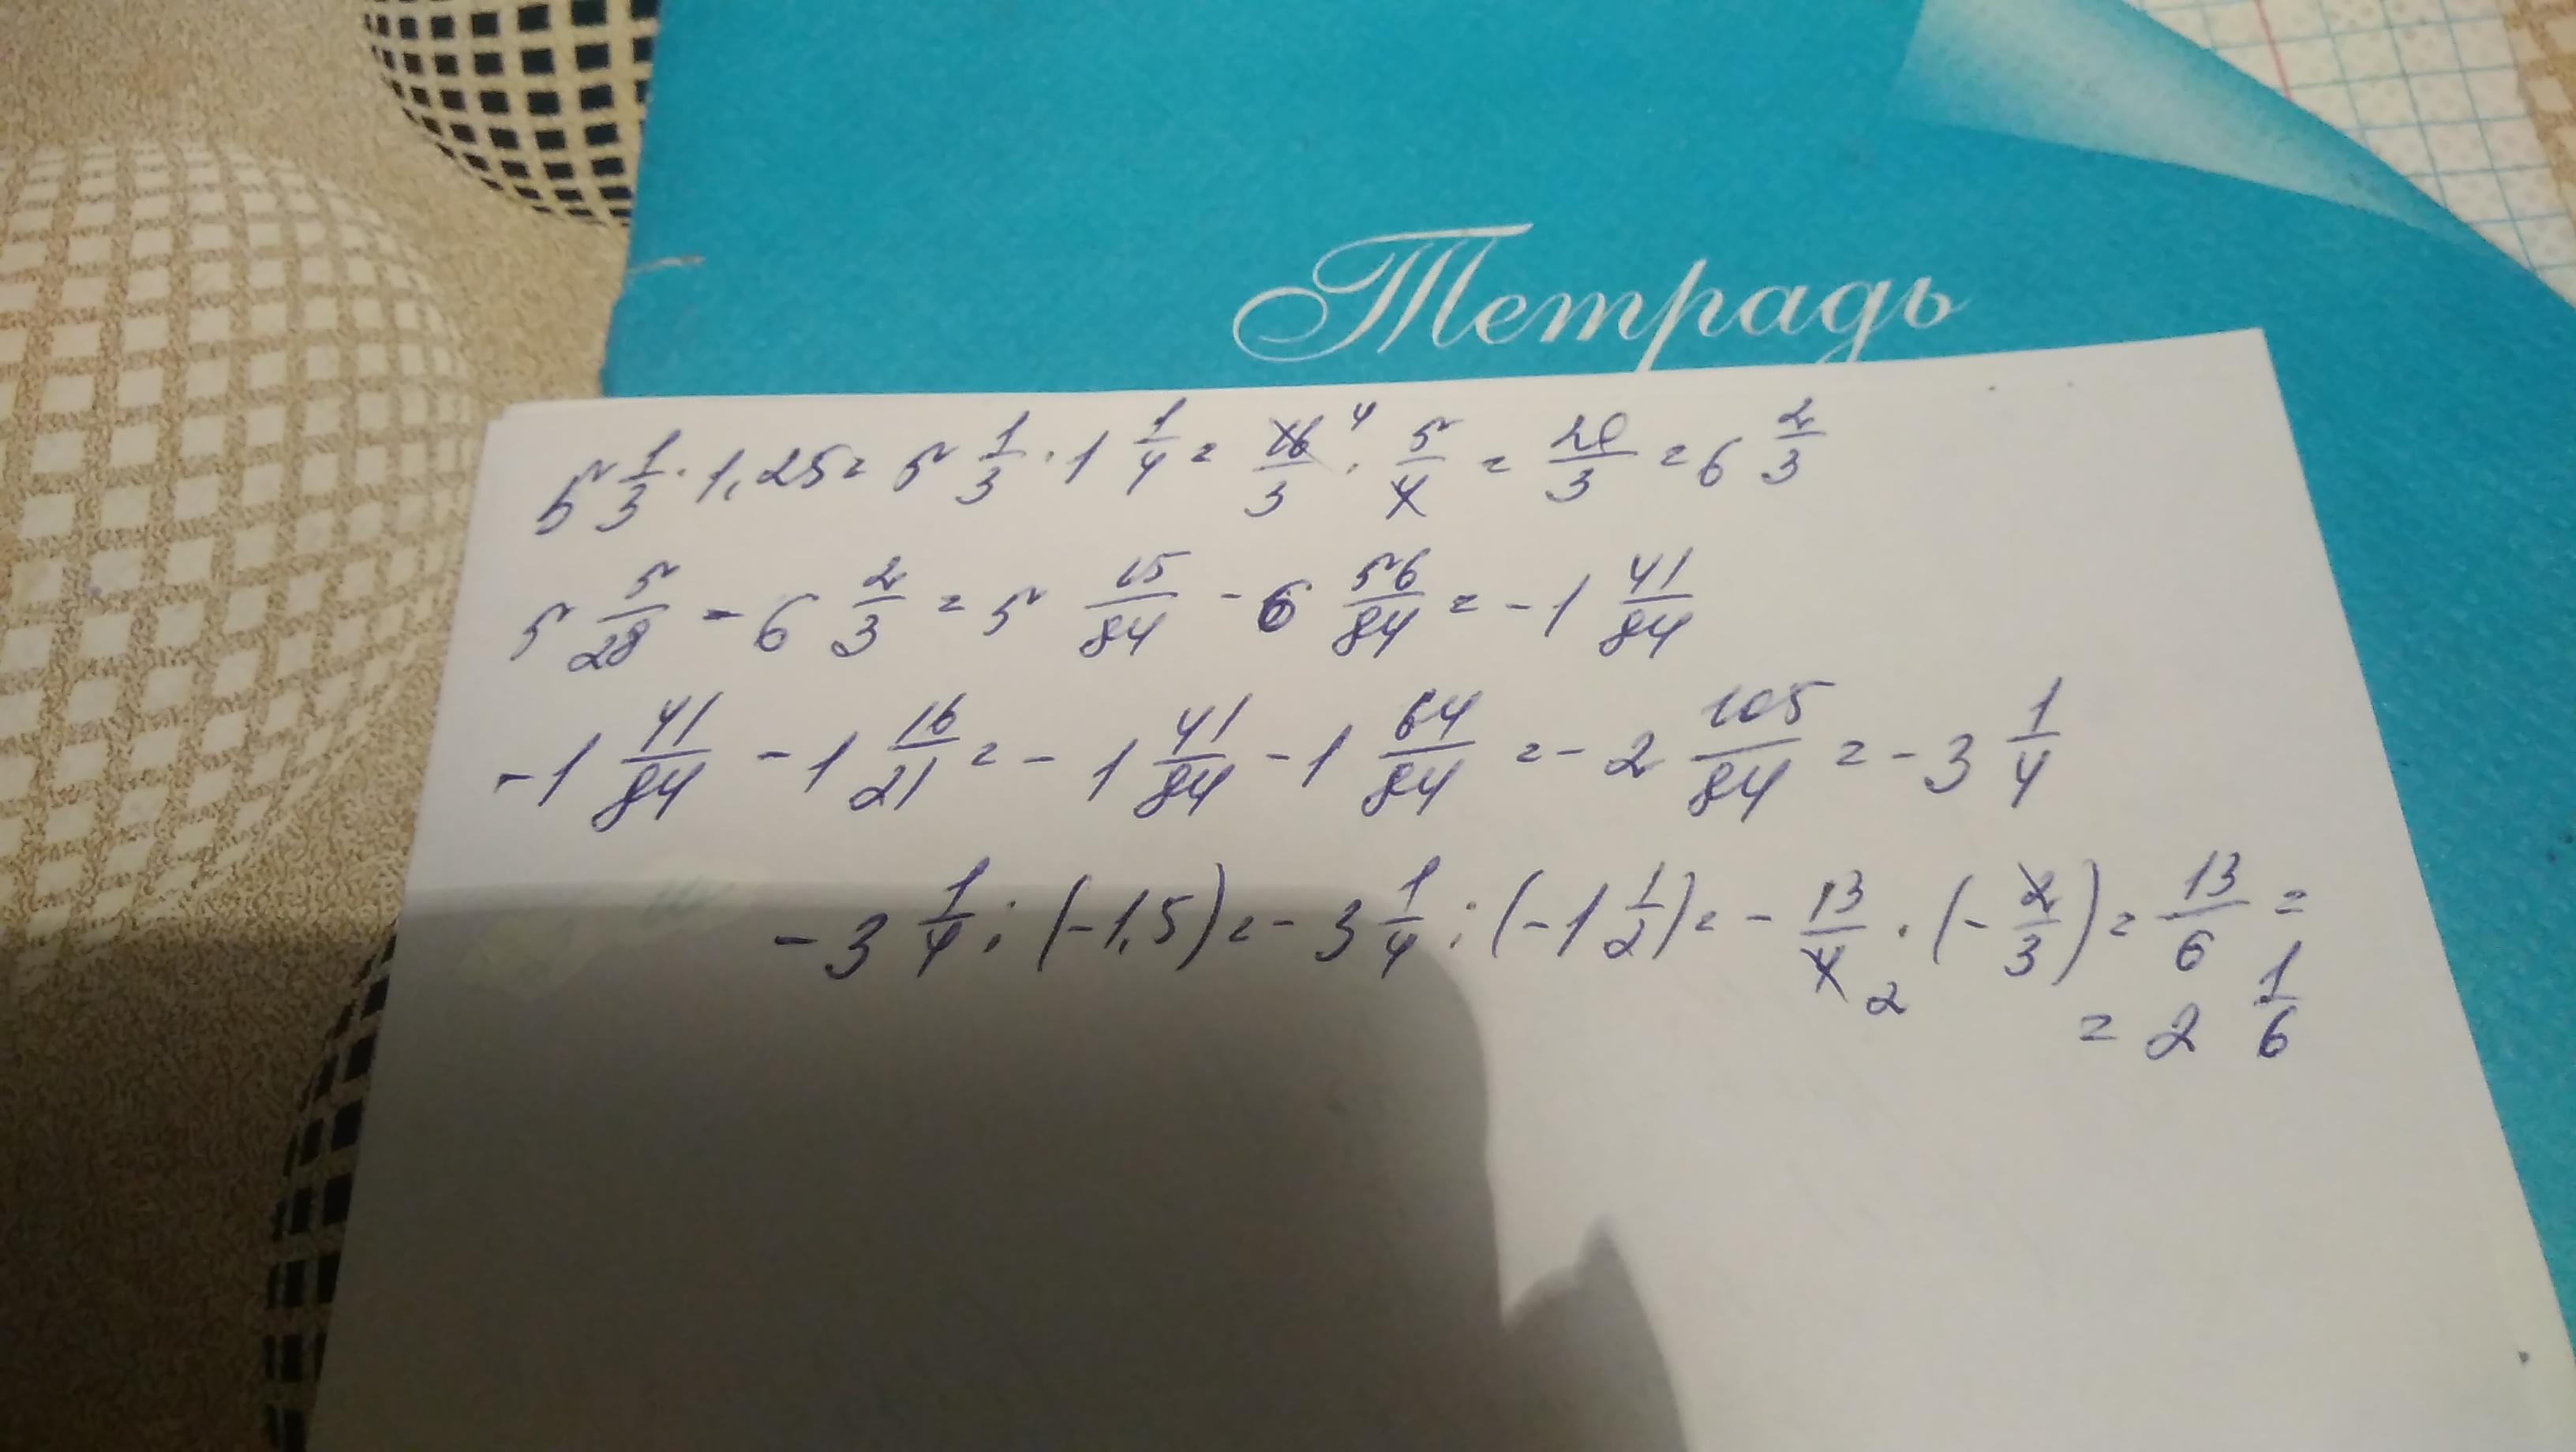 Тетрадь
5 1/3 · 1,25 = 5 1/3 · 1 1/4 = 16/3 4 · 5/4 = 20/3 = 6 2/3
5 5/28 - 6 2/3 = 5 15/84 - 6 56/84 = -1 41/84
-1 41/84 - 1 16/21 = -1 41/84 - 1 64/84 = -2 105/84 = -3 1/4
-3 1/4 : (-1,5) = -3 1/4 : (-1 1/2) = - 13/4 2 · (- 2/3) = 13/6 =
= 2 1/6